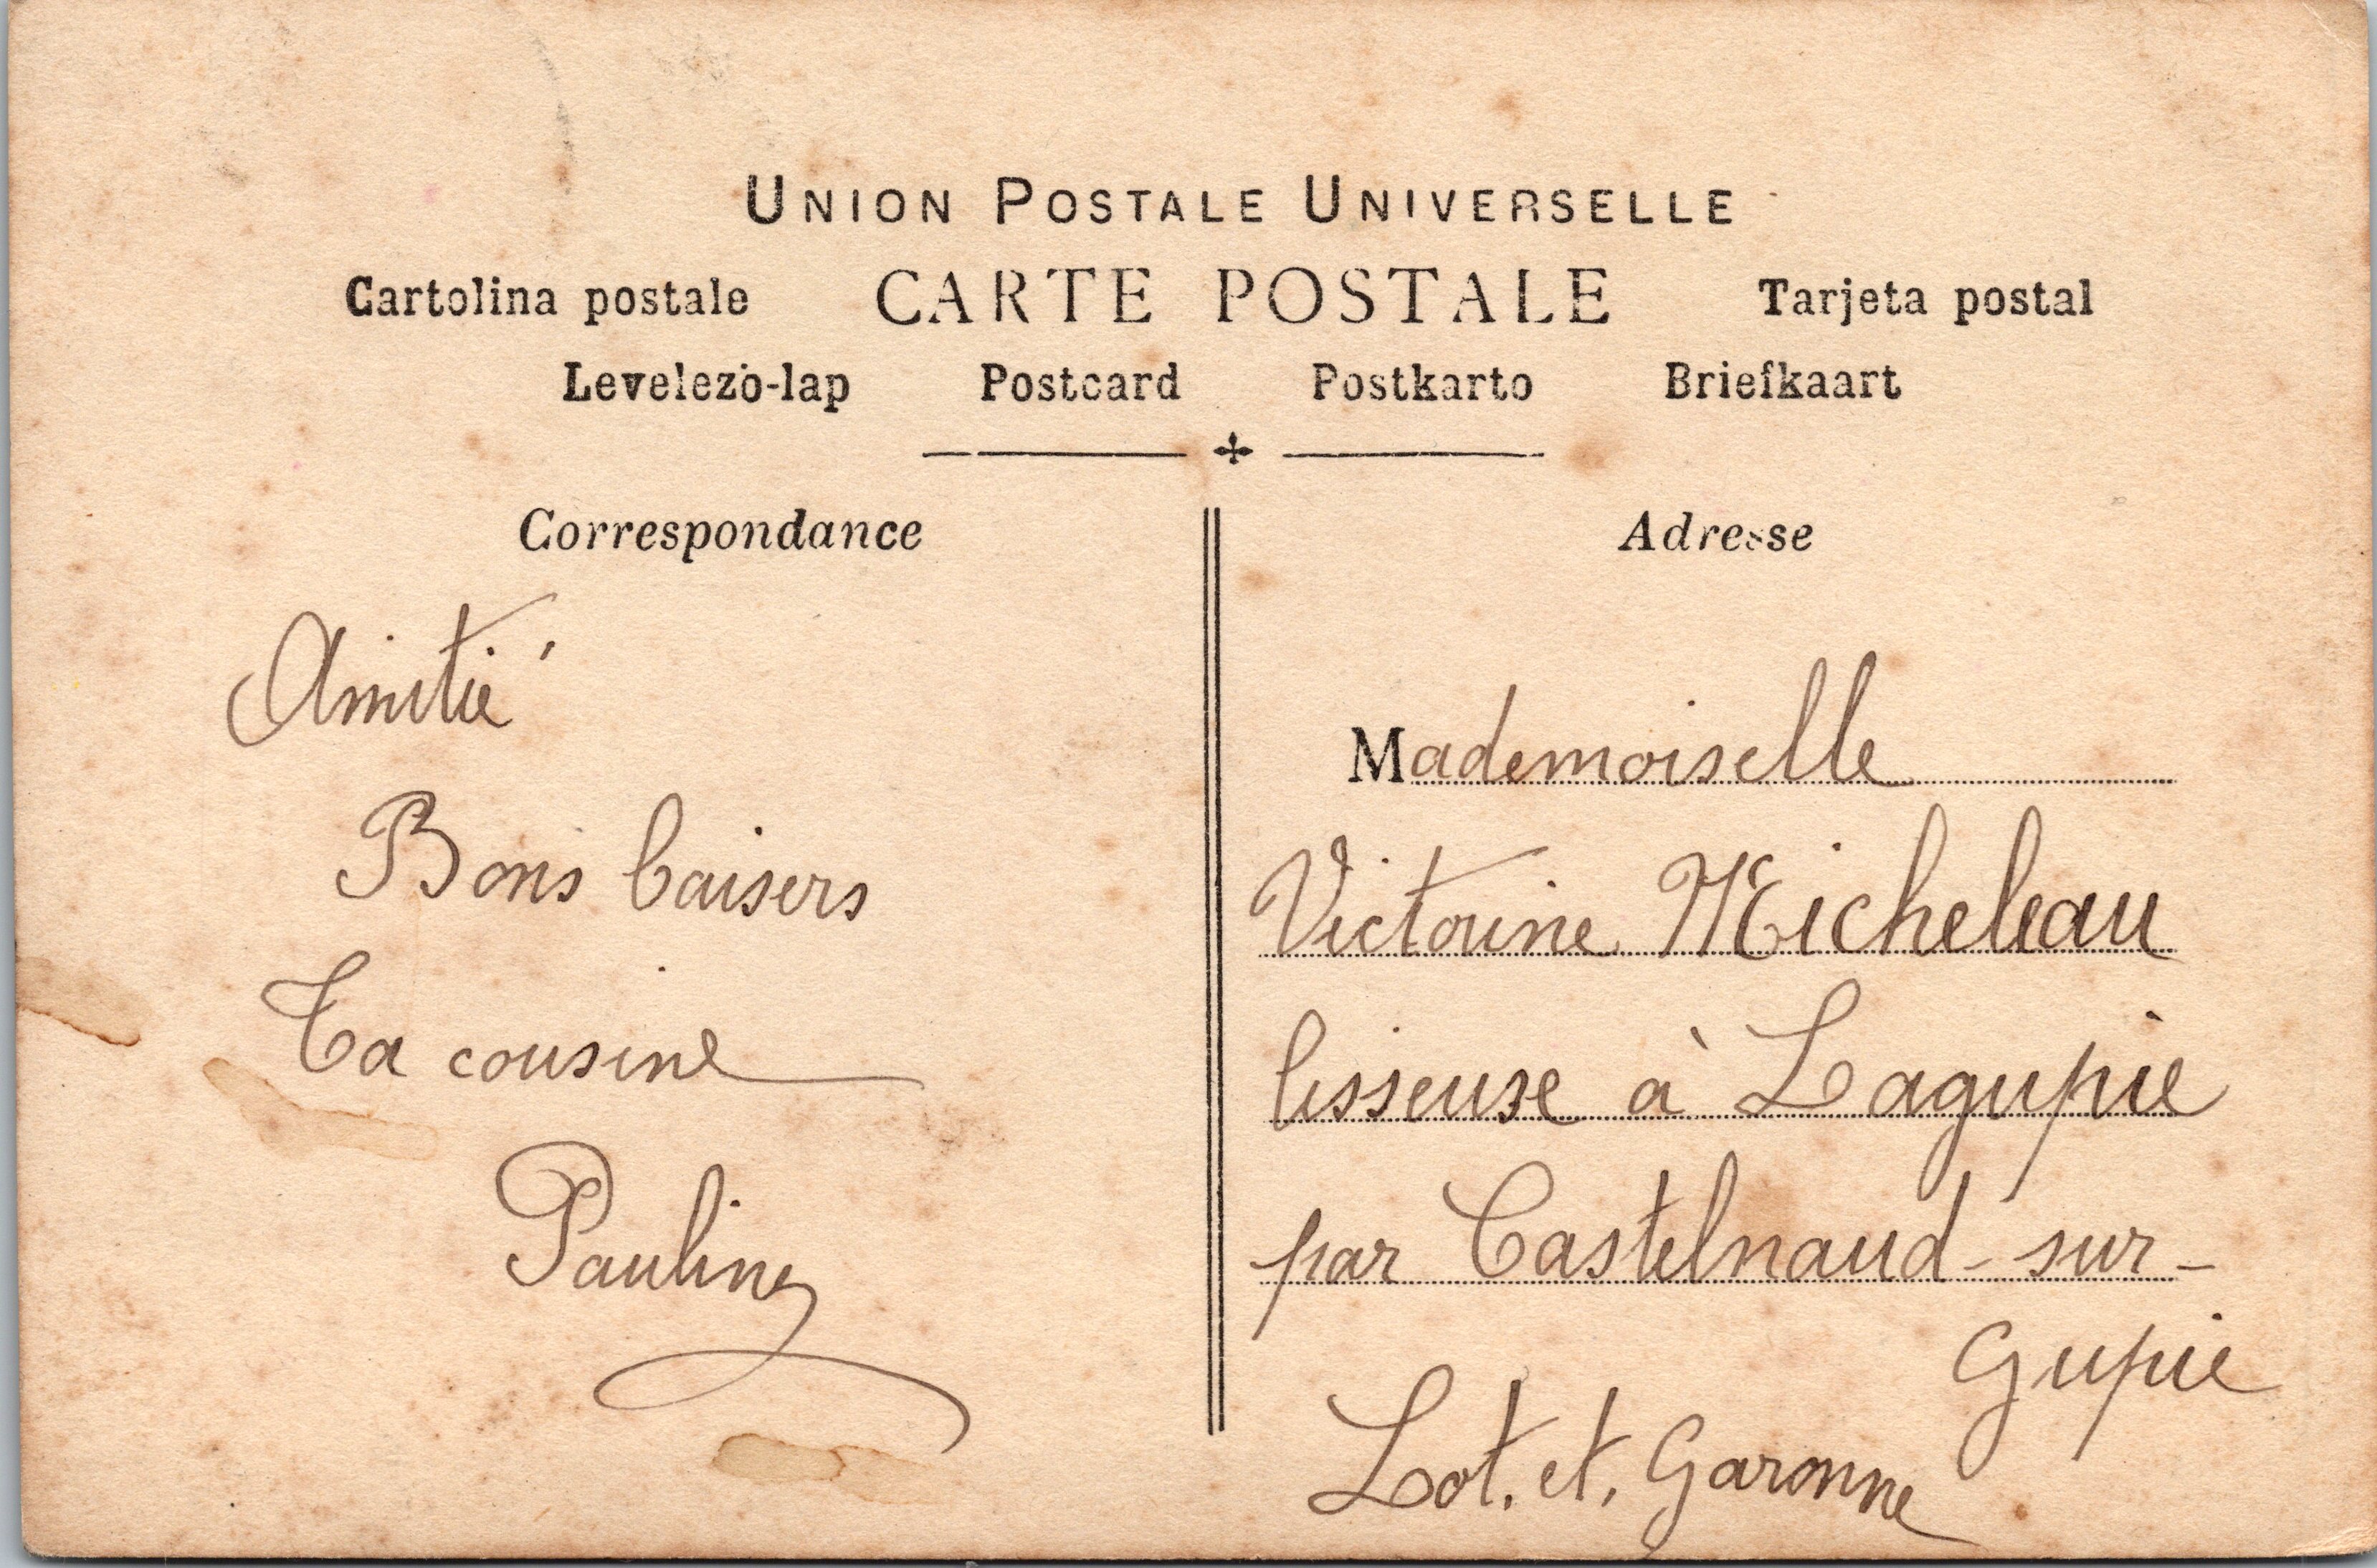 UNION POSTALE UNIVERSELLE
Cartolina postale CARTE POSTALE Tarjeta postal
Levelezö-lap Postcard Postkarto Briefkaart
Correspondance
Amitié
Bons baisers
Ta cousine
Pauline
Adresse
Mademoiselle
Victorine Micheleau
lisseuse à Lagupie
par Castelnaud-sur-
Gupie
Lot. et. Garonne